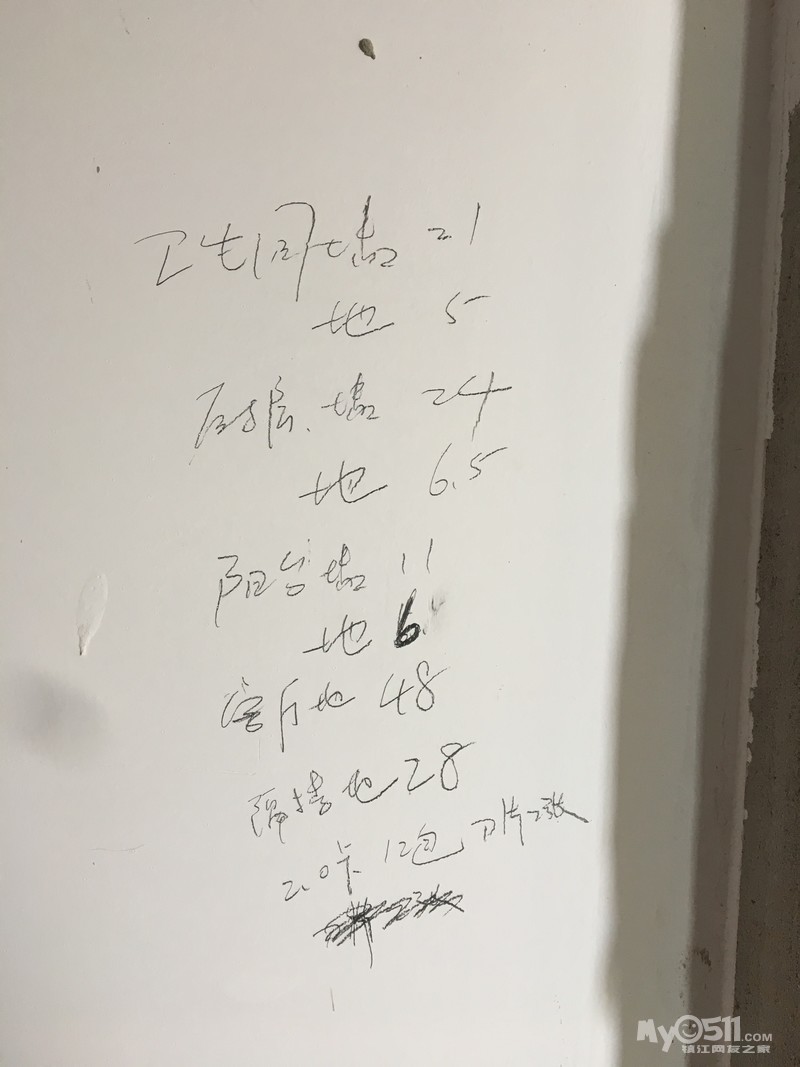 卫生间墙 21
地 5
厨房、墙 24
地 6.5
阳台墙 11
地 6
客厅地 48
隔楼地 28
2.0卡 12包 2张
MyO511.COM
镇江网友之家